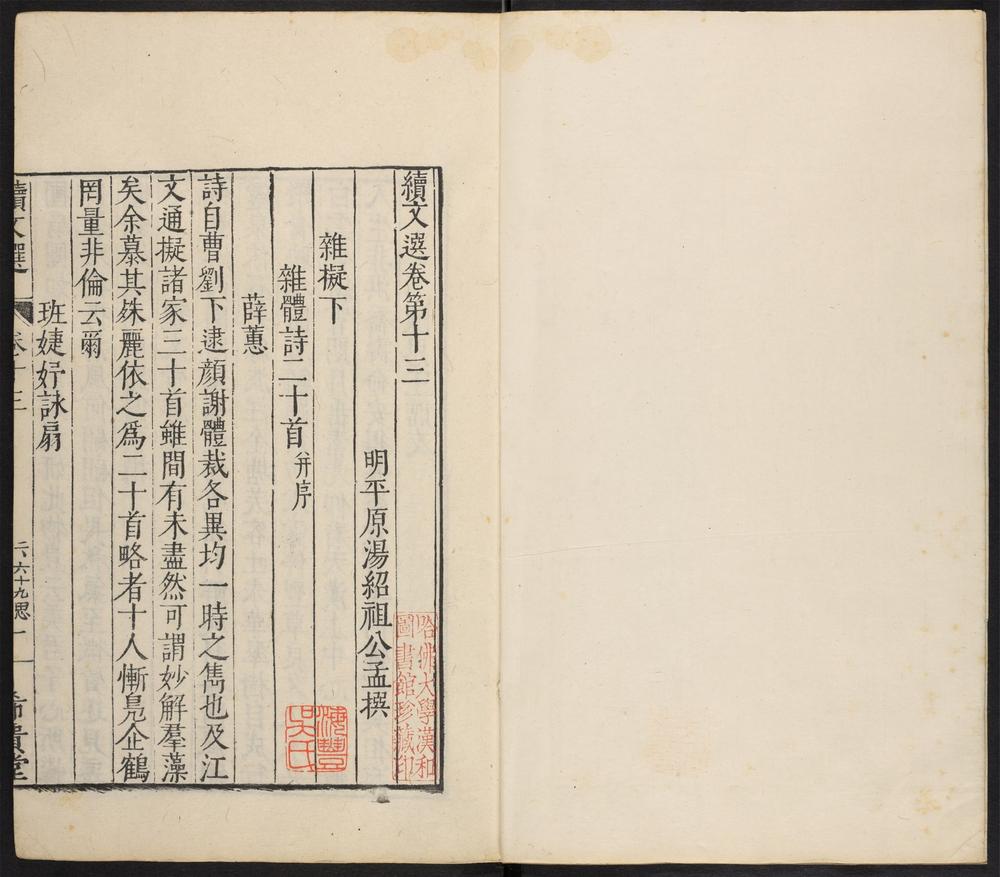 續文選卷第十三
明平原湯紹祖公孟撰
雜擬下
雜體詩二十首并序
薛蕙
詩自曹劉下逮顏謝體裁各異均一時之雋也及江
文通擬諸家三十首雖間有未盡然可謂妙解羣藻
矣余慕其殊麗依之爲二十首略者十人慚鳧企鶴
罔量非倫云爾
班婕妤詠扇
續文選
卷十三
六十九思
一
希貴堂
哈佛大學漢和
圖書館珍藏印
海豐
吳氏